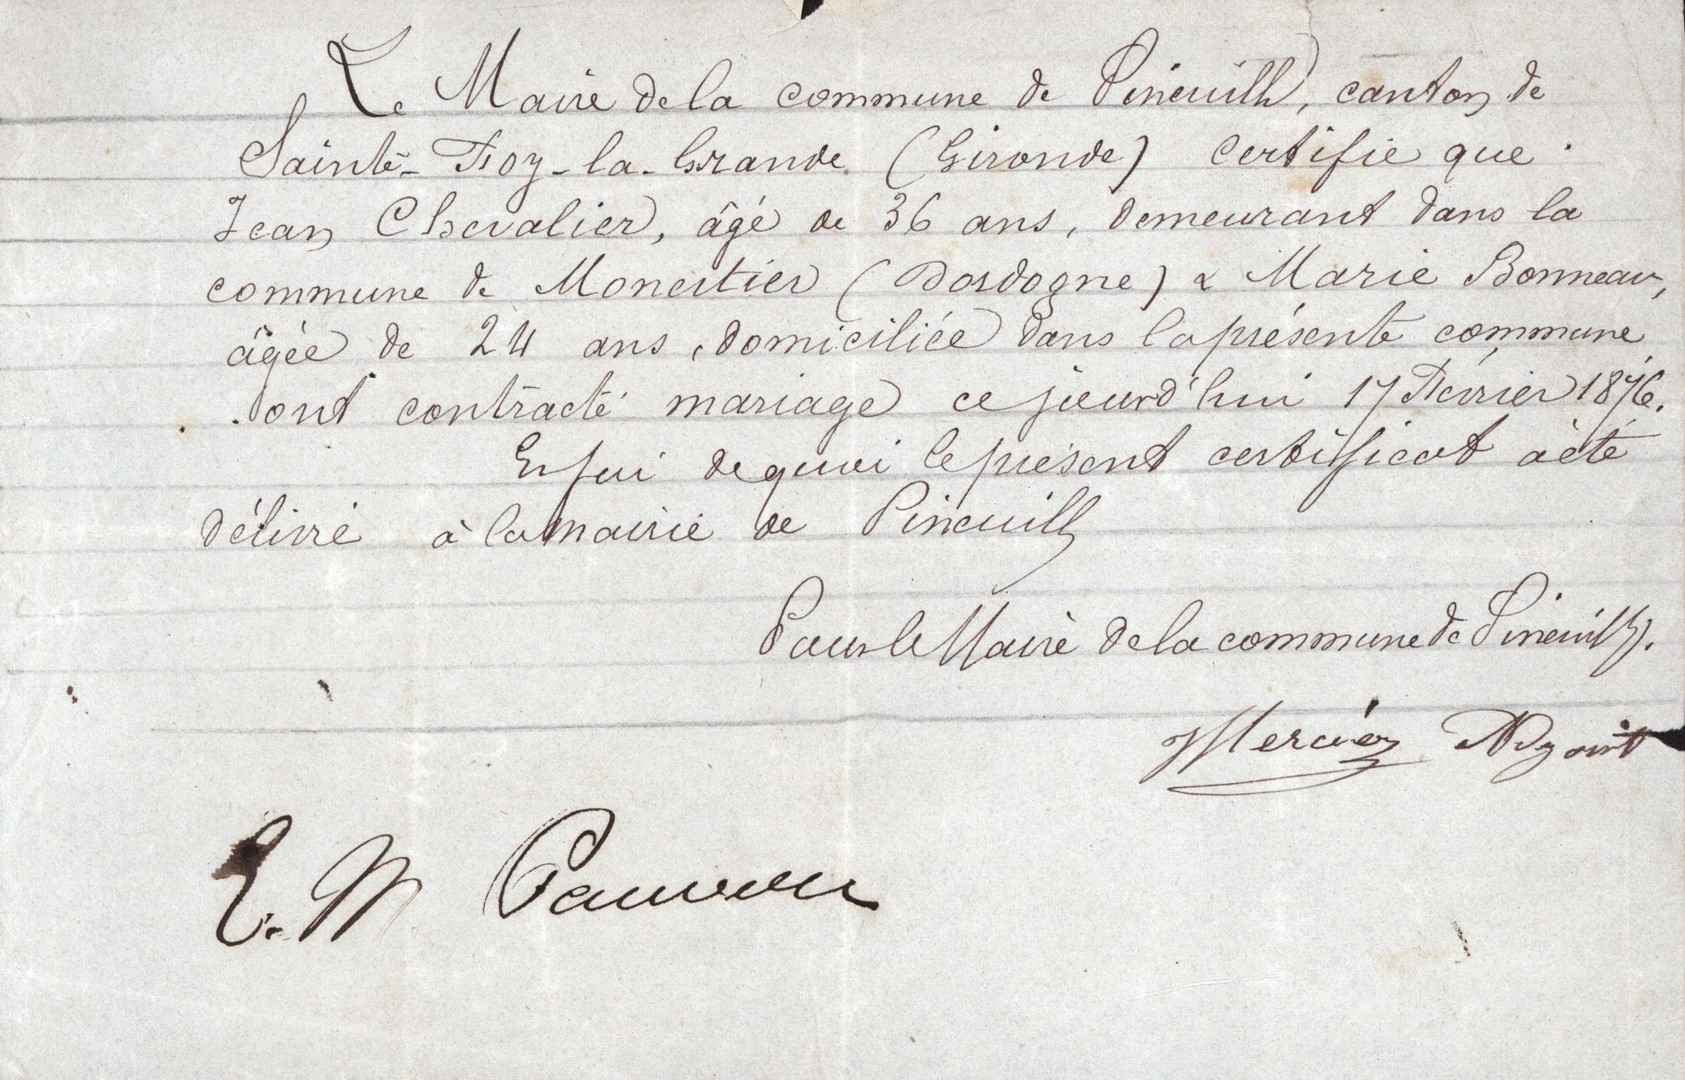 Le Maire de la commune de Pineuilh, canton de
Sainte-Foy-la-Grande (Gironde) certifie que
Jean Chevalier, âgé de 36 ans, demeurant dans la
commune de Monestier (Dordogne) & Marie Bonneau,
âgée de 24 ans, domiciliée dans la présente commune
ont contracté mariage ce jourd'hui 17 Février 1876.
En foi de quoi le présent certificat a été
délivré à la mairie de Pineuilh
Pour le Maire de la commune de Pineuilh.
Mercier Adjoint